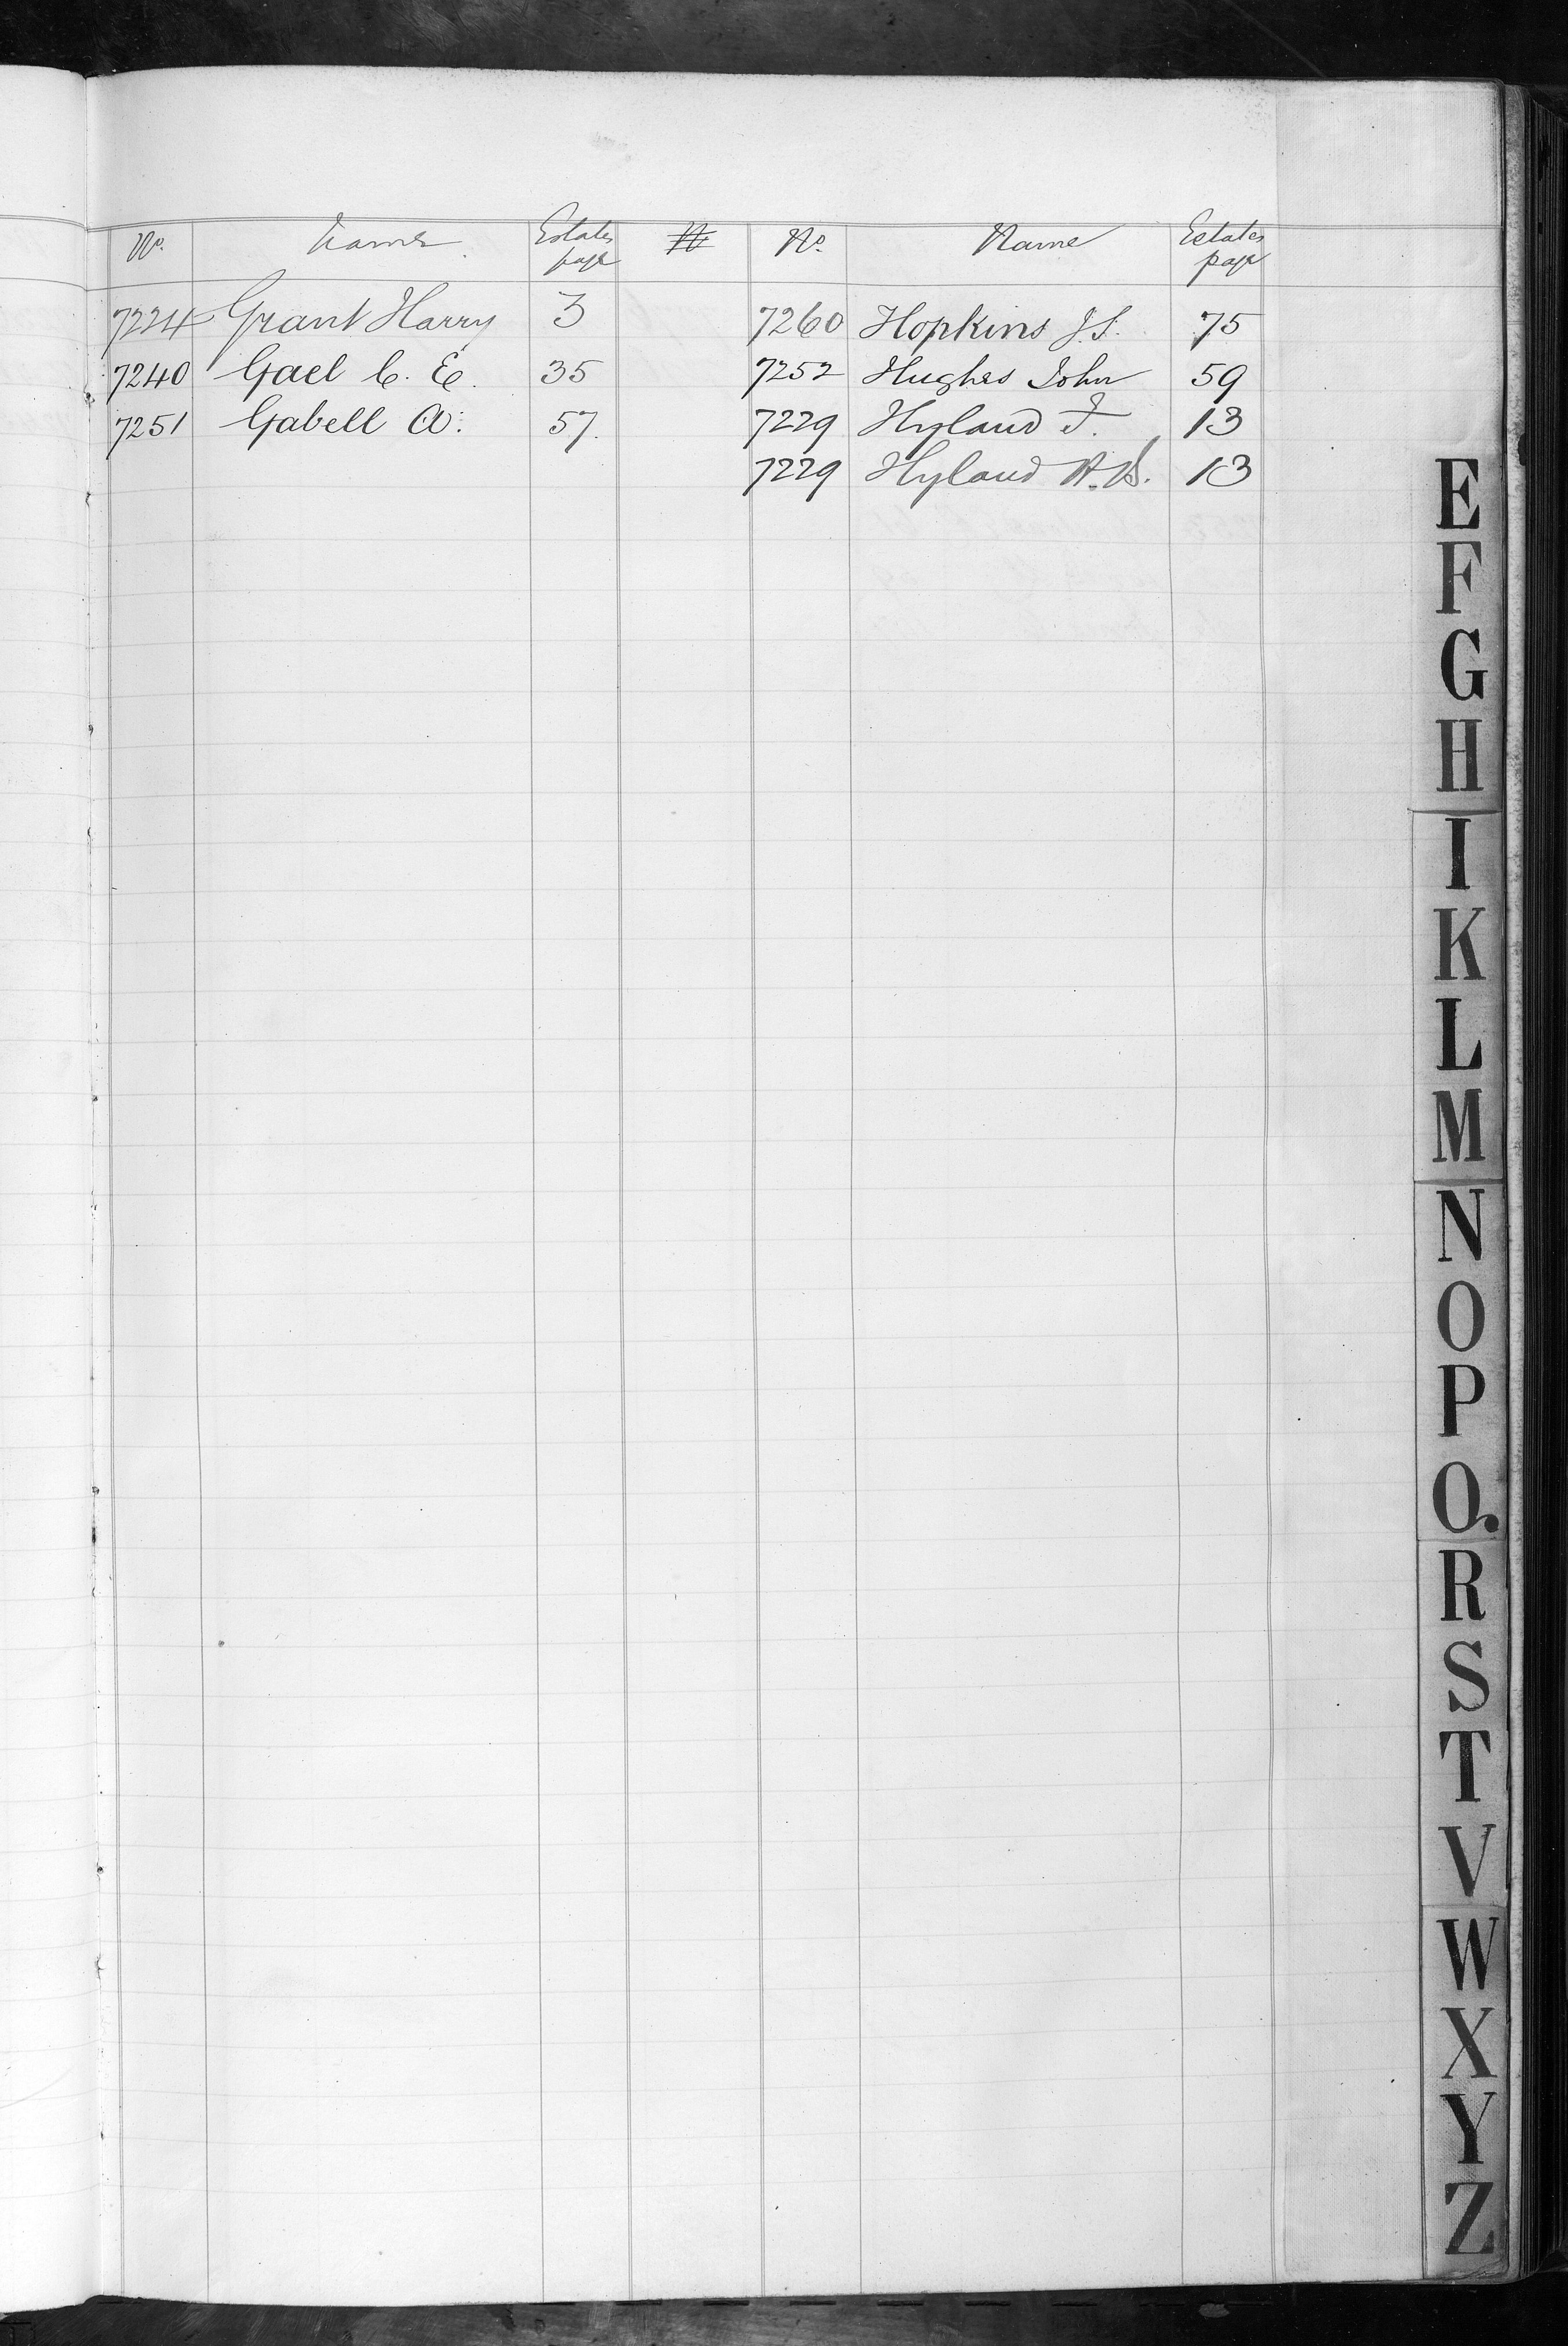 No. Name Estates page N No. Name Estates page
7224 Grant Harry 3 7260 Hopkins J.S. 75
7240 Gael C. E. 35 7252 Hughes John 59
7251 Gabell A: 57. 7229 Hyland F. 13
7229 Hyland 13
E
F
G
H
I
K
L
M
N
O
P
Q.
R
S
T
V
W
X
Y
Z